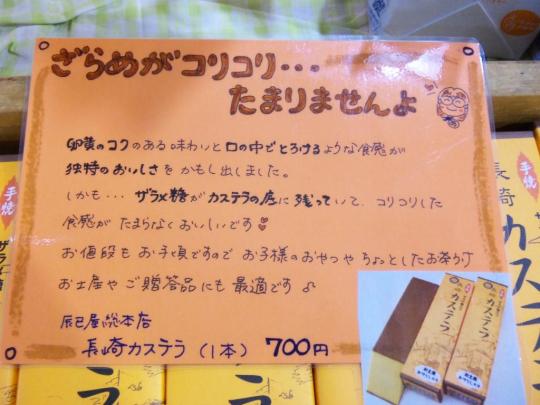 ざらめがコリコリ・・・
たまりませんよ
卵黄のコクのある味わいと口の中でとろけるような食感が
独特のおいしさをかもし出しました。
しかも・・・ザラメ糖がカステラの底に残っていて、コリコリした
食感がたまらなくおいしいです♥
お値段もお手頃ですのでお子様のおやつやちょっとしたお茶うけ
お土産やご贈答品にも最適です♪
辰己屋総本店
長崎カステラ(1本) 700円
手焼
ザラメ
ラ
ラ
ラ
手焼
長崎
カステラ
カステラ
カステラ